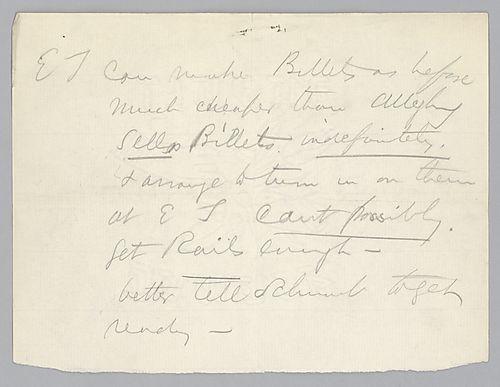 E T can make Billets as before
much cheaper than Allegheny
Sells Billets, indefinitely.
& arrange to turn in on them
at E T can't possibly
get Rails enough —
better tell Schwab to get
ready —